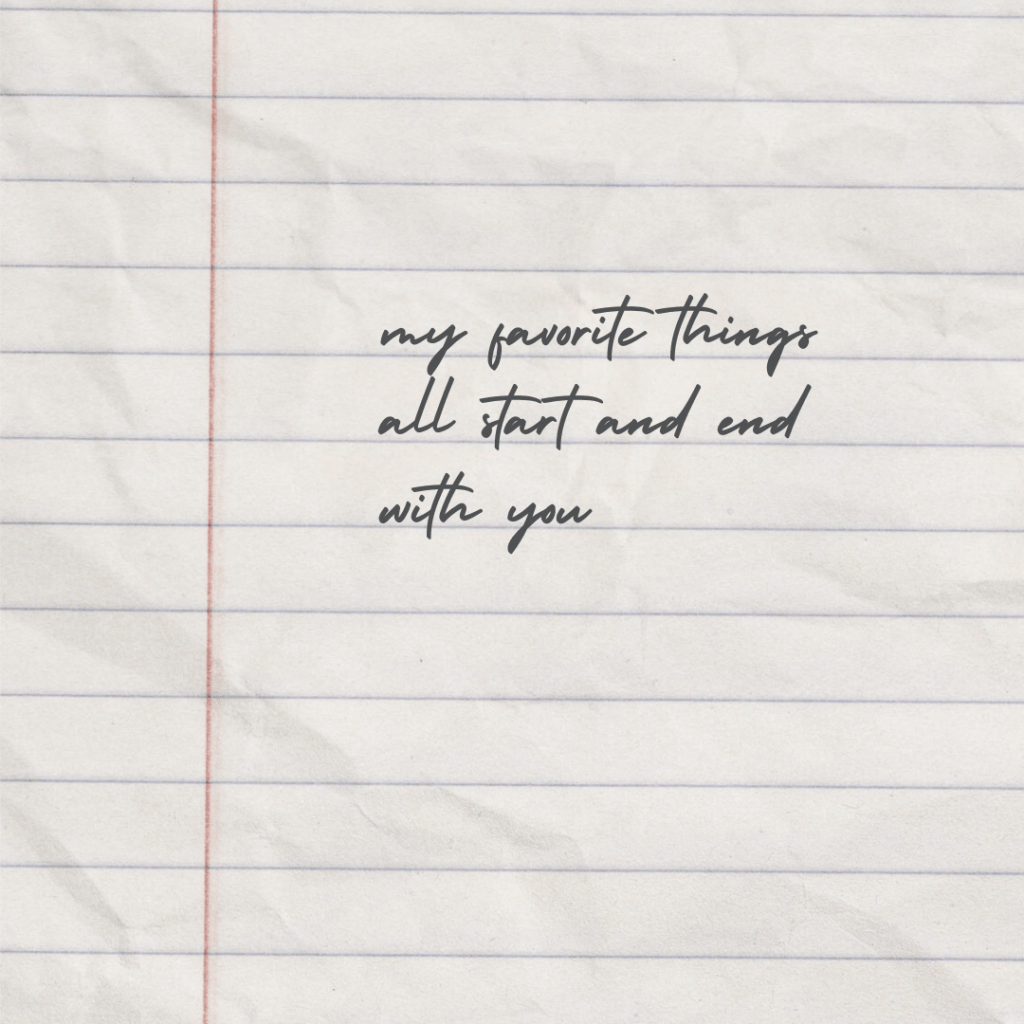 my favorite things
all start and end
with you